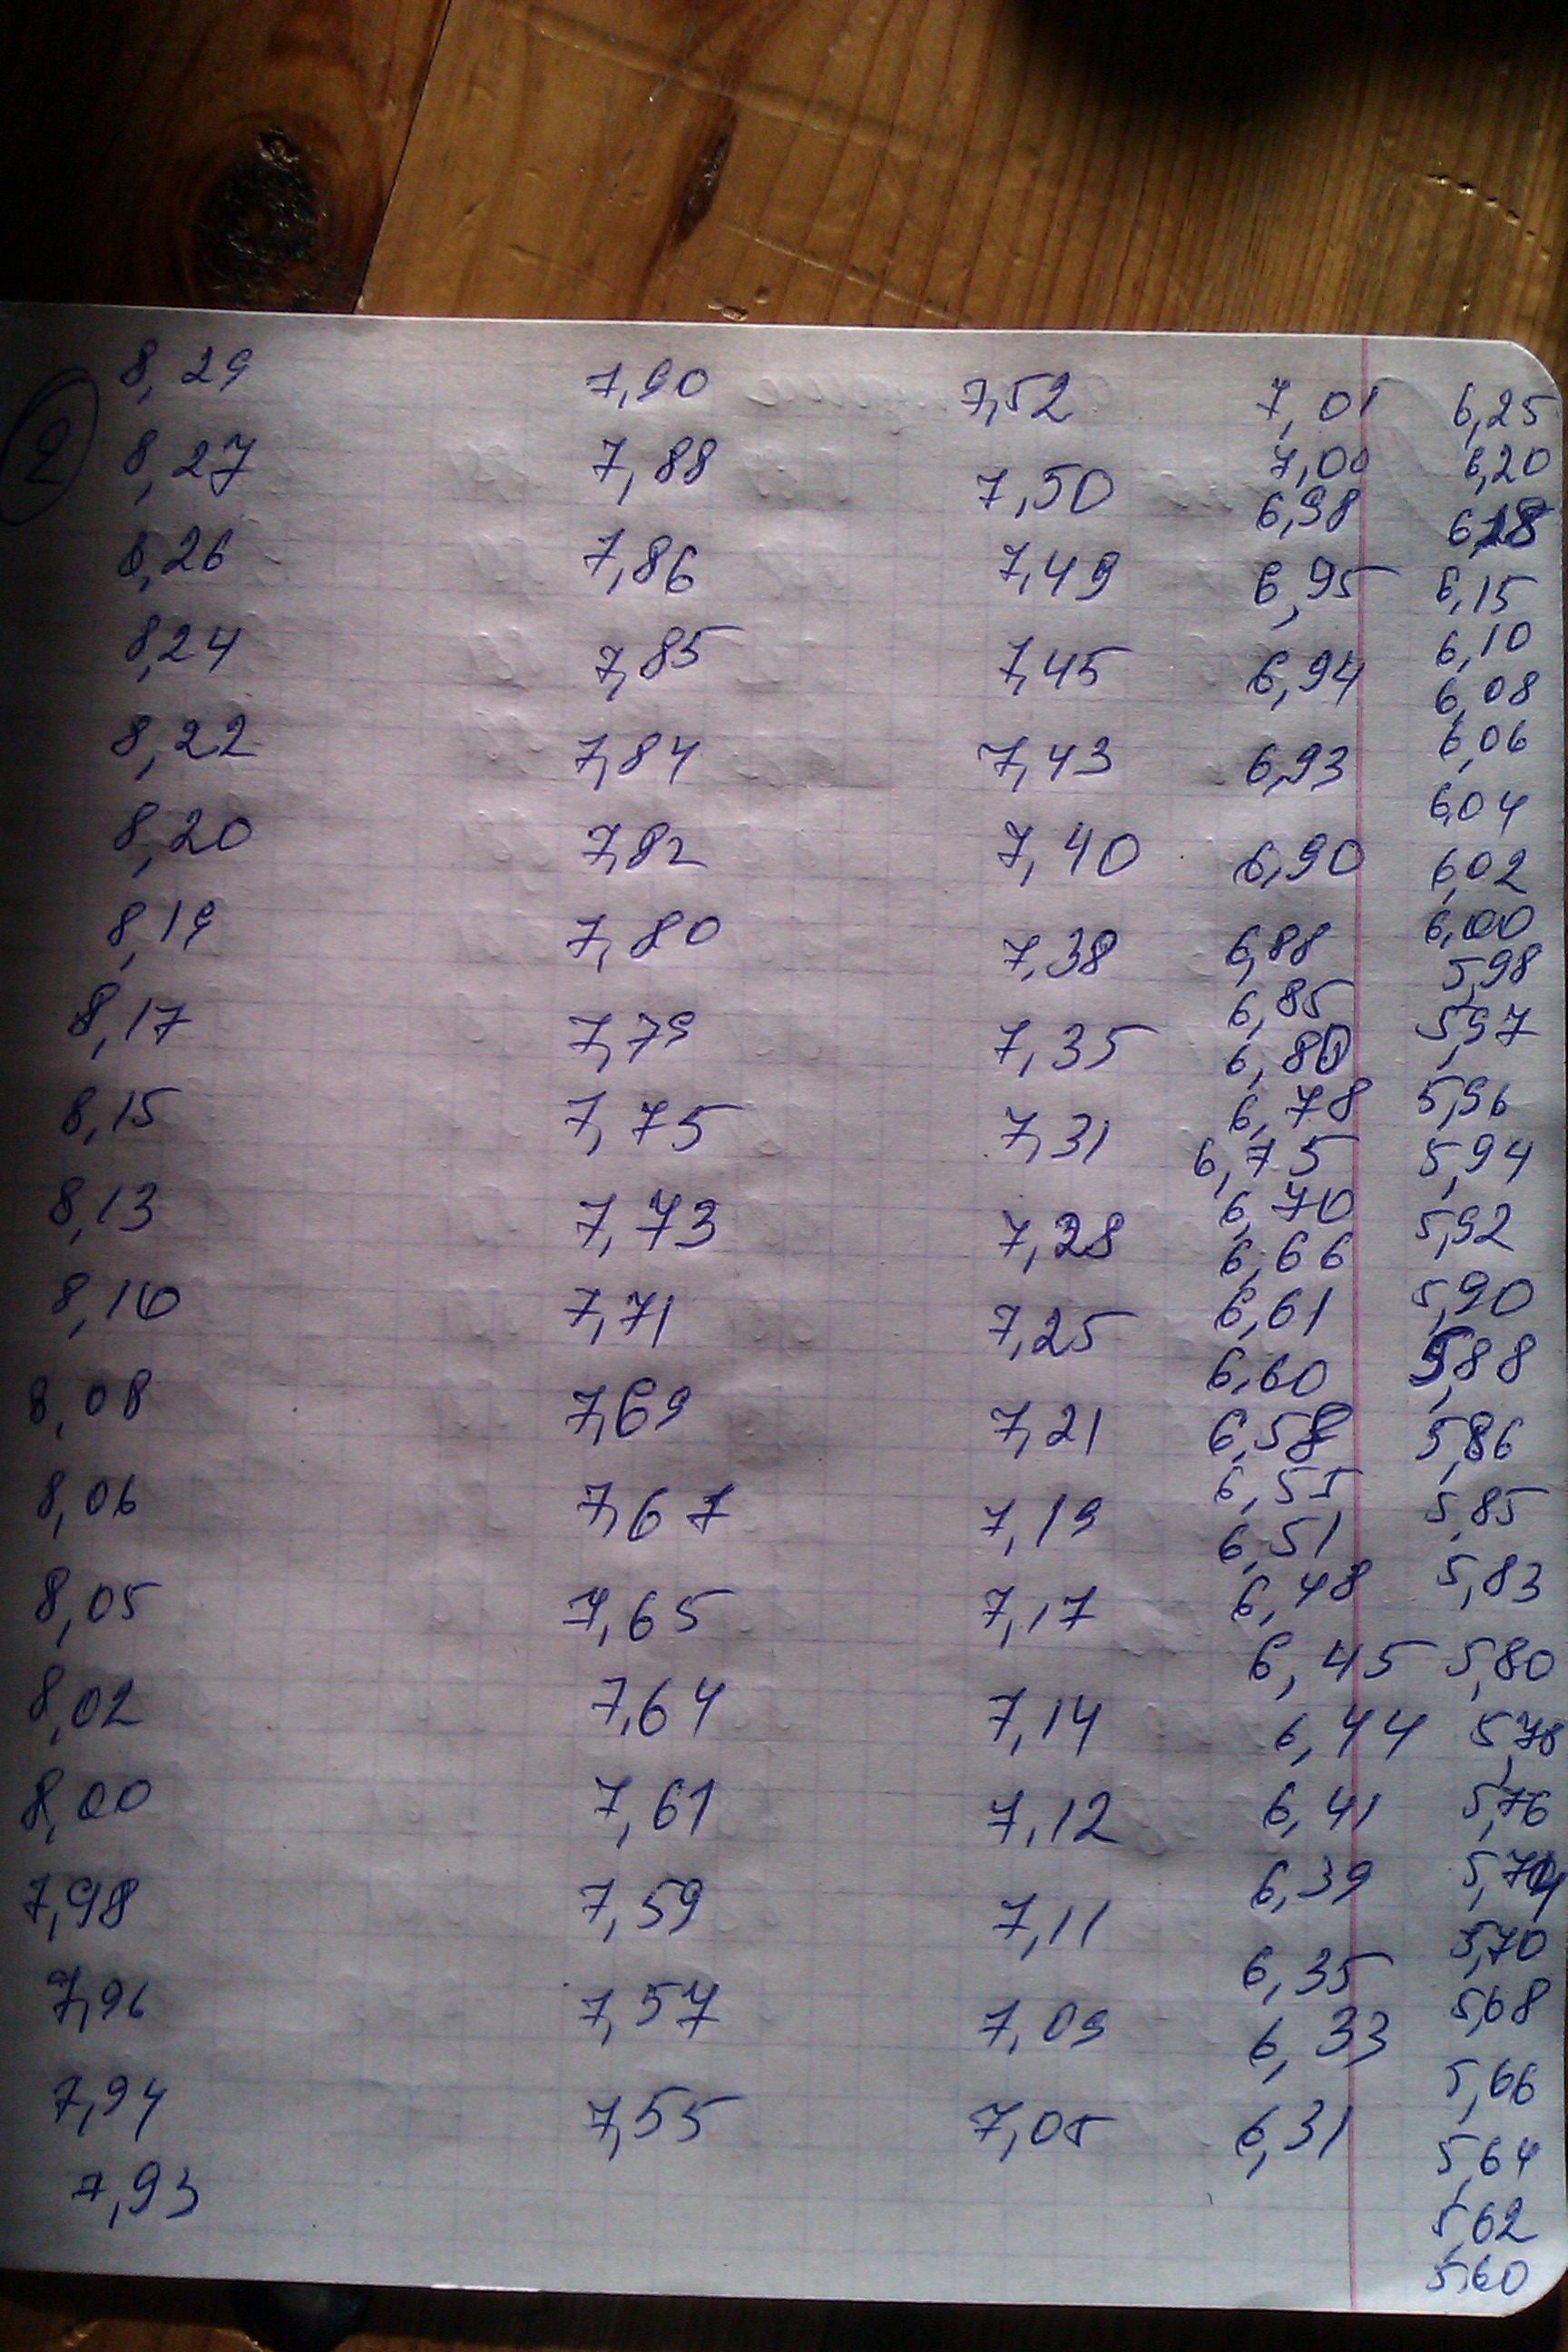 2
8,29
8,27
8,26
8,24
8,22
8,20
8,19
8,17
8,15
8,13
8,10
8,08
8,06
8,05
8,02
8,00
7,98
7,96
7,94
7,93
7,90
7,88
7,86
7,85
7,84
7,82
7,80
7,79
7,75
7,73
7,71
7,69
7,67
7,65
7,64
7,61
7,59
7,57
7,55
7,52
7,50
7,49
7,45
7,43
7,40
7,38
7,35
7,31
7,28
7,25
7,21
7,19
7,17
7,14
7,12
7,11
7,09
7,05
7,01
7,00
6,98
6,95
6,94
6,93
6,90
6,88
6,85
6,80
6,78
6,75
6,70
6,66
6,61
6,60
6,58
6,55
6,51
6,48
6,45
6,44
6,41
6,39
6,35
6,33
6,31
6,25
6,20
6,18
6,15
6,10
6,08
6,06
6,04
6,02
6,00
5,98
5,97
5,96
5,94
5,92
5,90
5,88
5,86
5,85
5,83
5,80
5,78
5,76
5,74
5,70
5,68
5,66
5,64
5,62
5,60